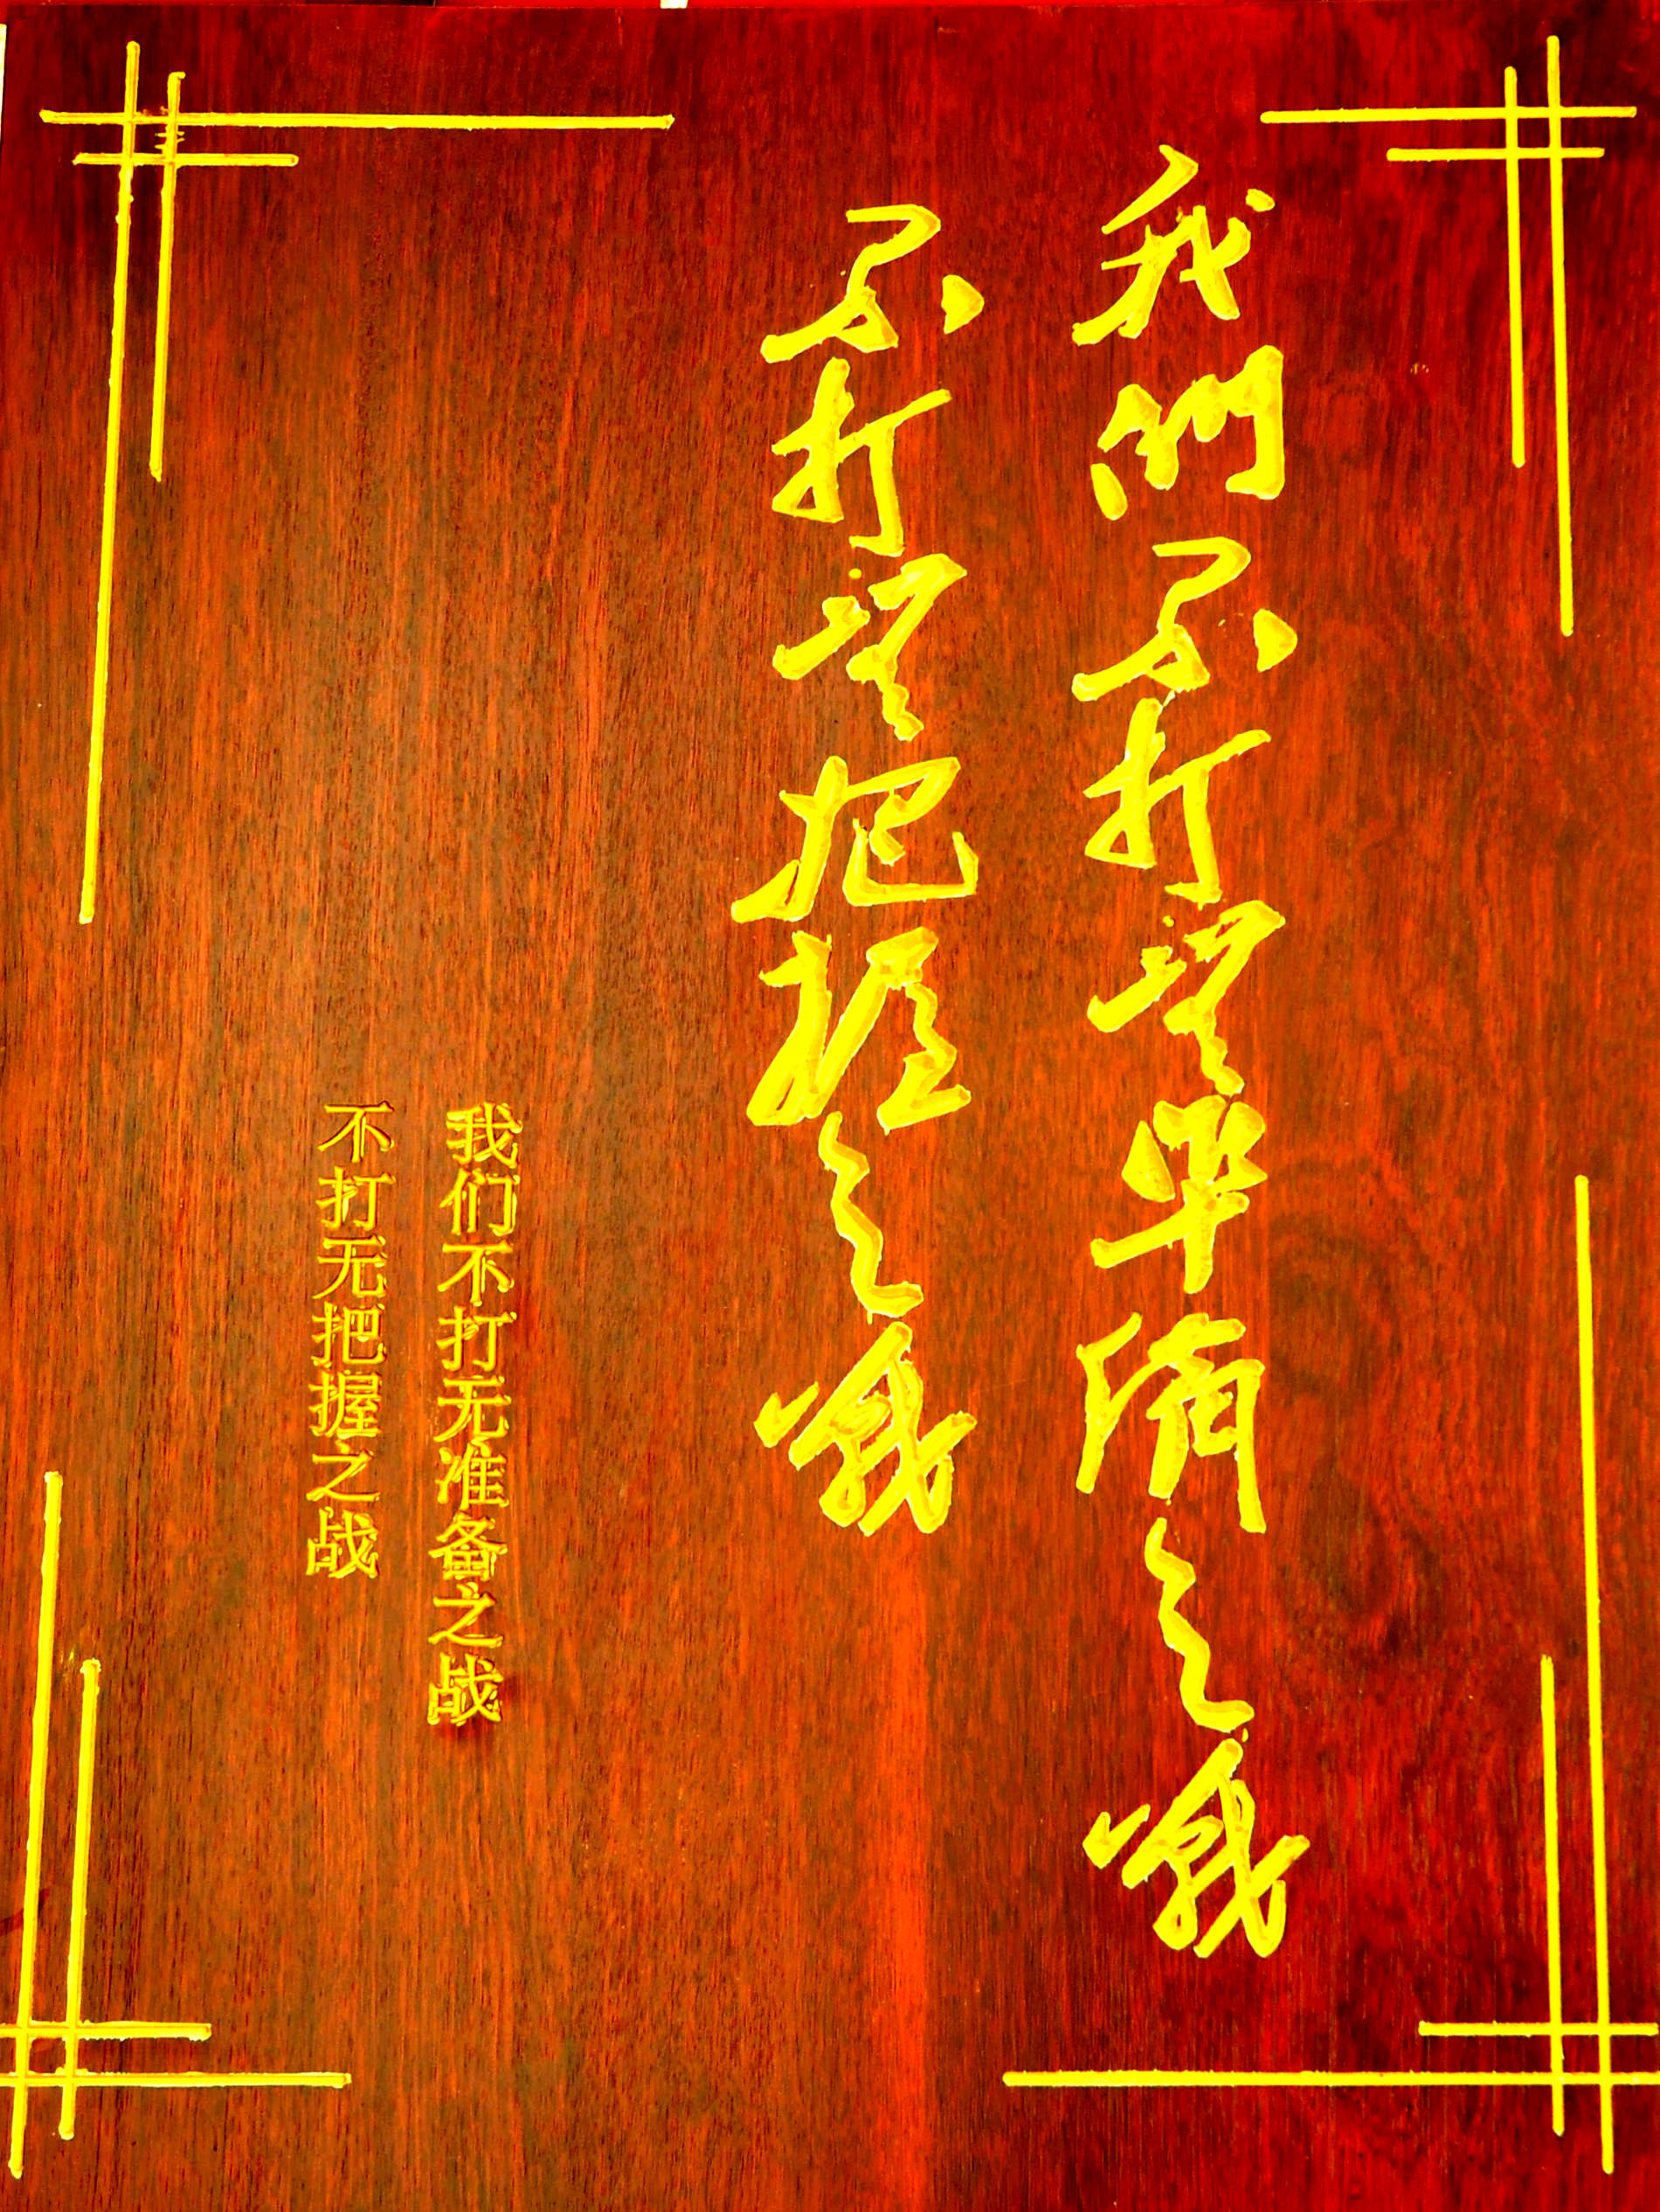 我們不打無準備之戰
不打無把握之戰
我们不打无准备之战
不打无把握之战